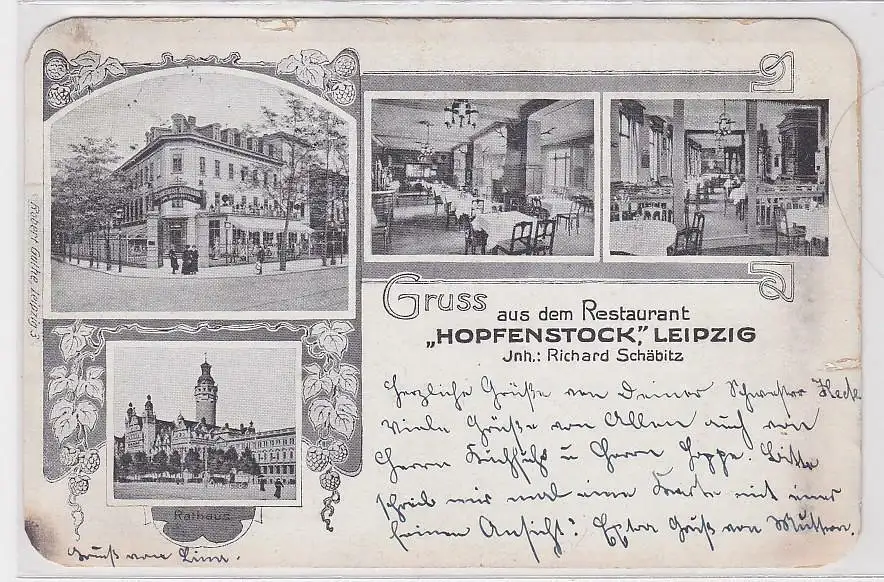 Gruss
aus dem Restaurant
„HOPFENSTOCK," LEIPZIG
Jnh.: Richard Schäbitz
Herzliche Grüße von Deiner Schwester
Viele Grüße von Allen auch von
Herrn u Herrn Hoppe. Bitte
schreib mir mal eine Karte mit einer
feinen Ansicht! Extra Gruß von Muttern.
Rathaus
Gruß von Lina.
Leipzig 3